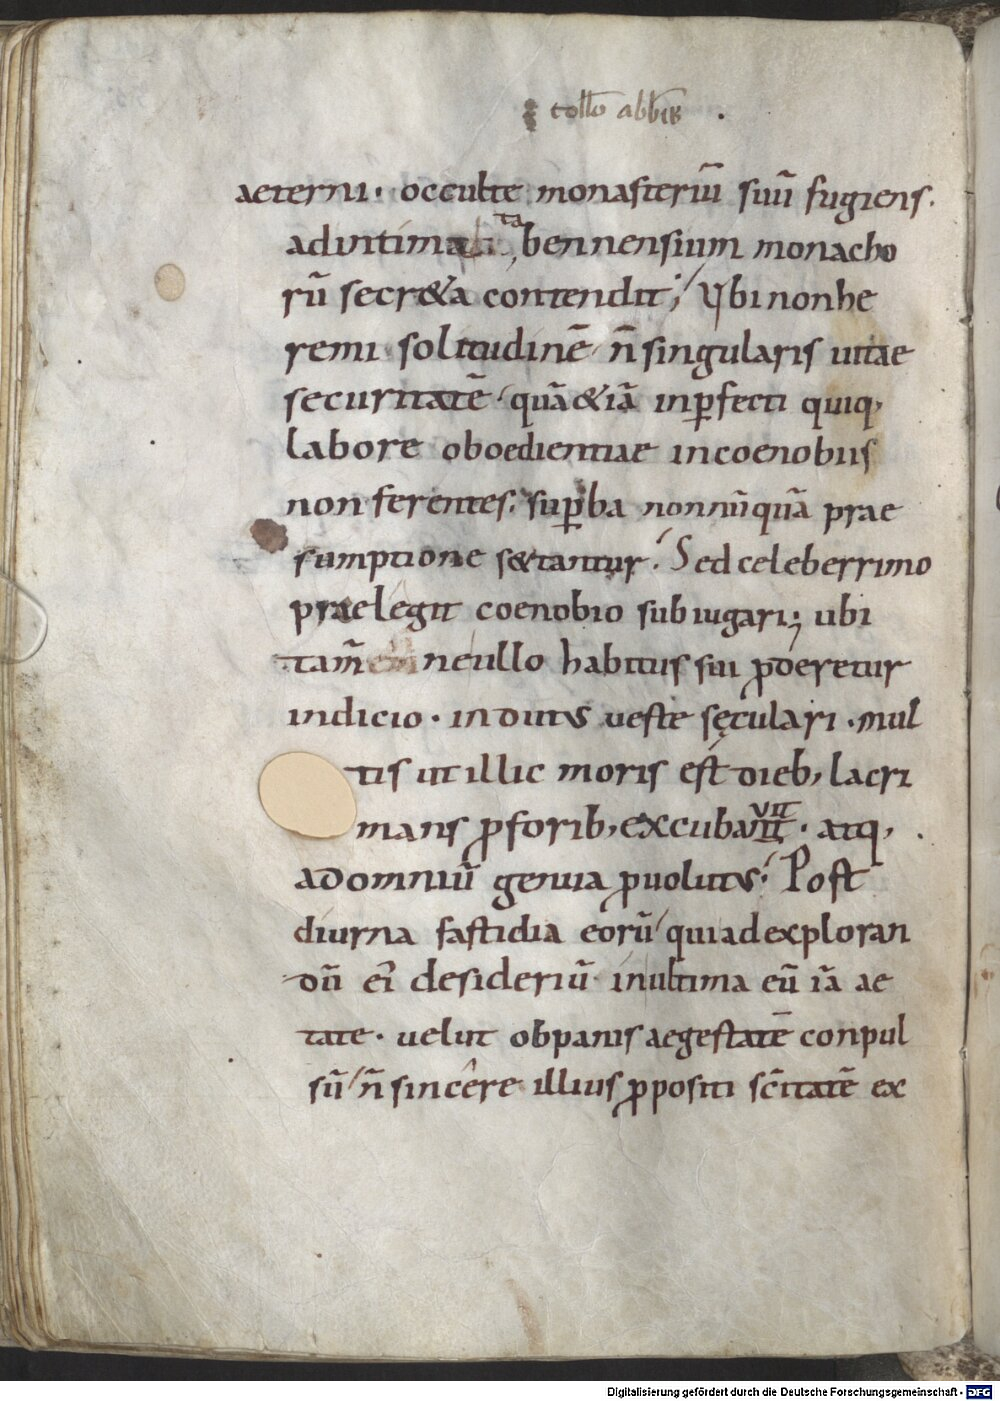 collō abb
aeterni · occulte monasteriū suū fugiens.
ad intima tabennensium monacho
rū secr&a contendit; Ubi non he
remi solitudinē n̄ singularis uitae
securitatē quā &iā inp̲fecti quiq,
labore oboedientiae in coenobiis
non ferentes. sup̲ba nonnūquā prae
sumptione s&tantur. Sed celeberrimo
praelegit coenobio subiugari; ubi
tam̄ ne ullo habitus sui ꝓderetur
indicio · indutus ueste sęculari · mul
tis ut illic moris est dieb, lacri
mans ꝓ forib, excubauit · atq,
ad omniū genua ꝓuolutus. Post
diurna fastidia eorū qui ad exploran
dū ei desideriū in ultima eū iā ae
tate · uelut ob panis aegestatē conpul
sū n̄ sincere illius ꝓpositi sc̄itatē ex
Digitalisierung gefördert durch die Deutsche Forschungsgemeinschaft - DFG